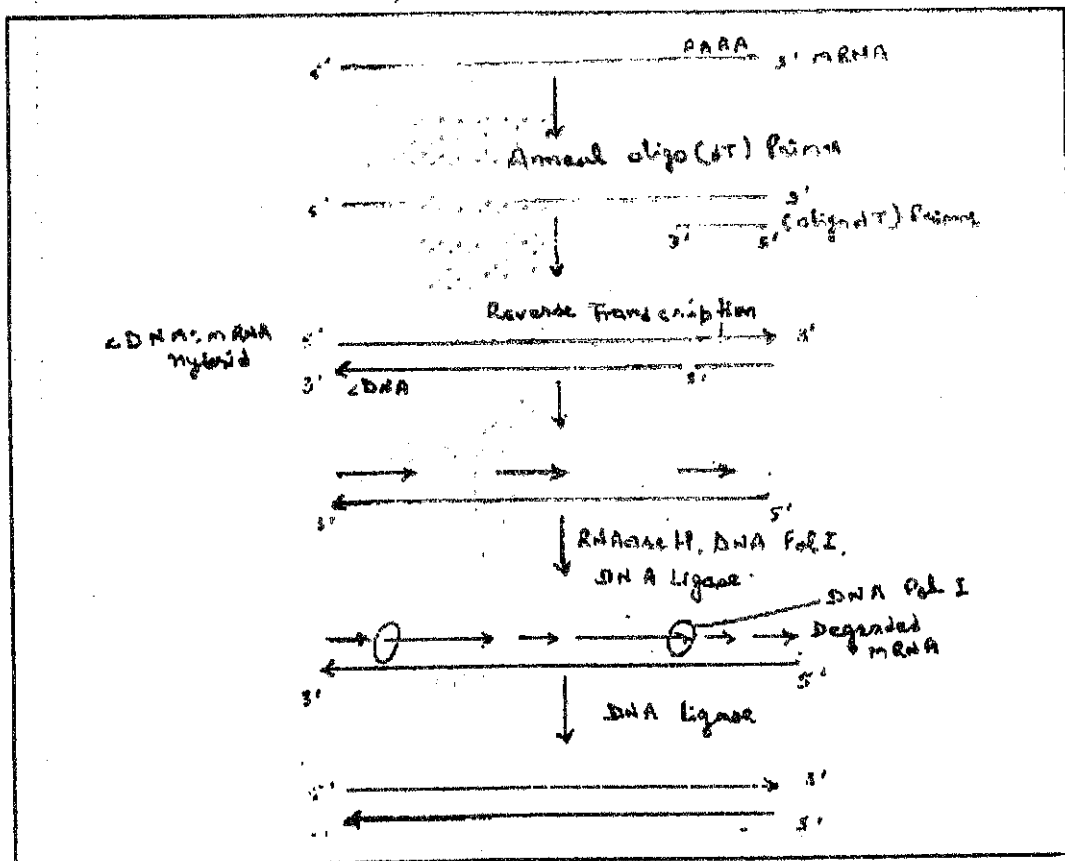 AAAA
5' 3' mRNA
Anneal oligo (dT) Primer
5' 3'
3' 5' (oligo dT) Primer
Reverse Transcription
cDNA:mRNA 5' 3'
Hybrid
3' cDNA 5'
3' 5'
RNAase H, DNA Pol I,
DNA Ligase.
DNA Pol I
Degraded
mRNA
3' 5'
DNA ligase
5' 3'
5'